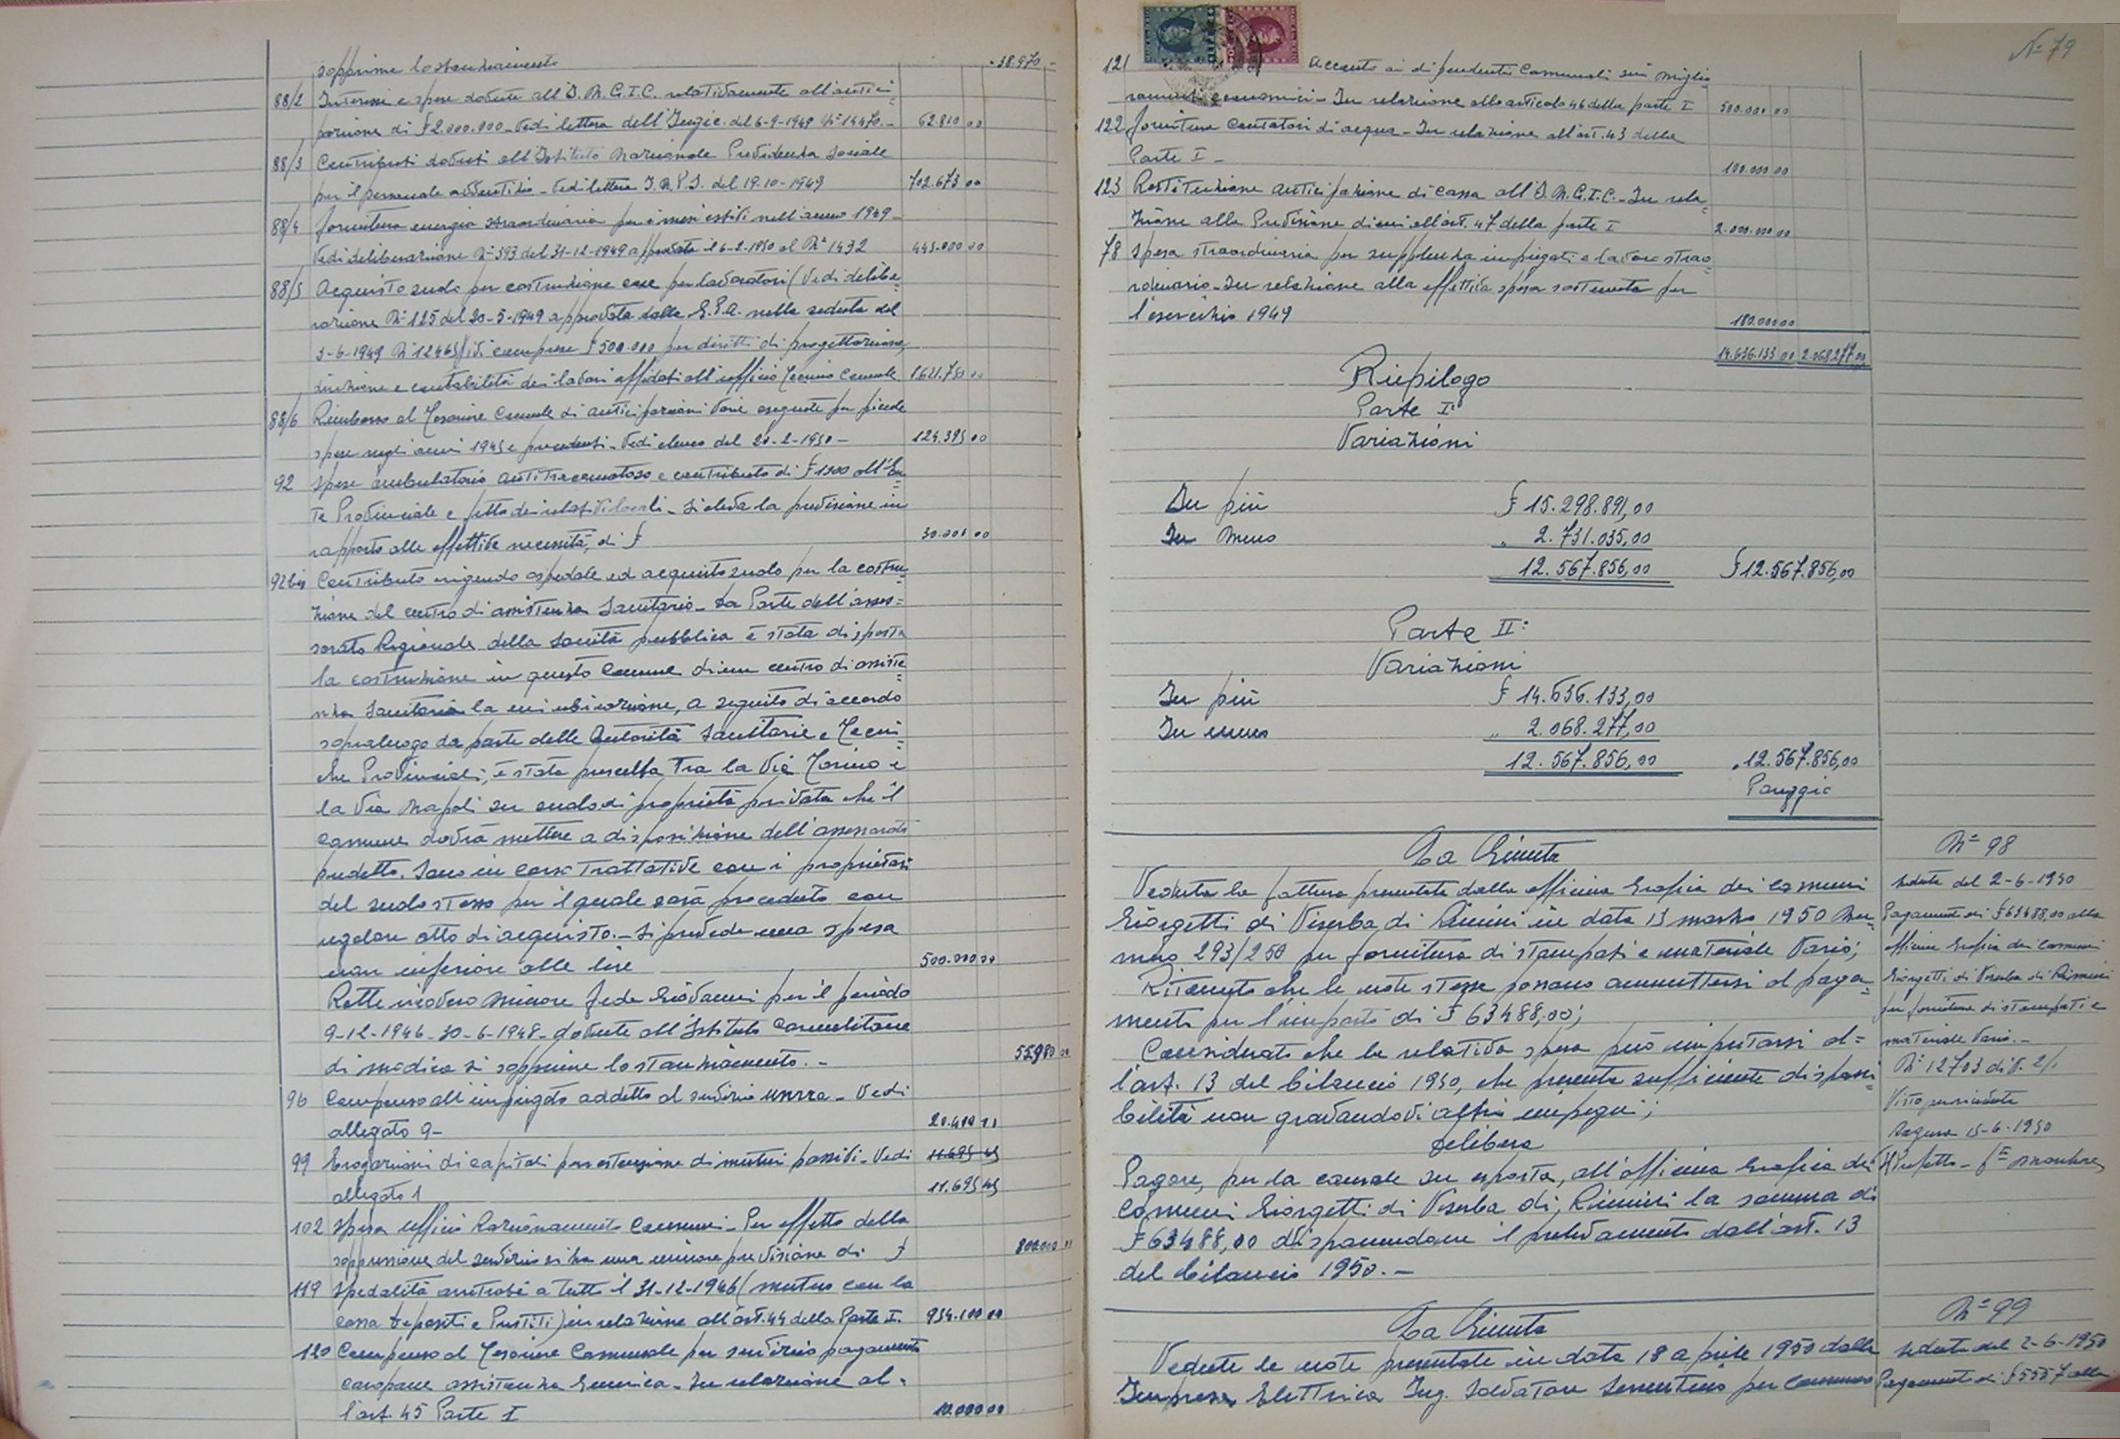 sopprime lo stanziamento - 38.970 -
88/2 Interessi e spese dovute all'I.N.G.I.C. relativamente all'antici=
pazione di £ 2.000.000 - Vedi lettera dell'Ingic. del 6-9-1949 N° 14470 - 62.810 00
88/3 Contributi dovuti all'Istituto Nazionale Previdenza Sociale
per il personale avventizio - Vedi lettera I.N.P.S. del 19-10-1949 702.673 00
88/4 fornitura energia straordinaria per i mesi estivi nell'anno 1949 -
Vedi deliberazione N° 593 del 31-12-1949 approvata il 6-2-1950 al N° 1432 445.000 00
88/5 Acquisto suolo per costruzione case per lavoratori (Vedi delibe=
razione N° 125 del 20-5-1949 approvata dalla G.P.A. nella seduta del
3-6-1949 N° 12465) ivi comprese £ 500.000 per diritti di progettazione,
direzione e contabilità dei lavori affidati all'ufficio Tecnico Comunale 1.621.750 00
88/6 Rimborso al Tesoriere Comunale di anticipazioni varie eseguite per piccole
spese negli anni 1945 e precedenti - Vedi elenco del 20-2-1950 - 124.395 00
92 Spese ambulatorio antitracomatoso e contributo di £ 1500 all'En=
te Provinciale e fitto dei relativi locali - Si eleva la previsione in
rapporto alle effettive necessità, di £ 30.000 00
92bis Contributo erigendo ospedale ed acquisto suolo per la costru=
zione del centro di assistenza Sanitario - Da Parte dell'asses=
sorato Regionale della Sanità pubblica è stata disposta
la costruzione in questo Comune di un centro di assiste=
nza Sanitaria la cui ubicazione, a seguito di accordo
sopraluogo da parte delle Autorità Sanitarie e Tecni=
che Provinciali, è stata prescelta tra la Via Torino e
la Via Napoli su suolo di proprietà privata che il
Comune dovrà mettere a disposizione dell'assessorato
predetto. Sono in corso trattative con i proprietari
del suolo stesso per il quale sarà proceduto con
regolare atto di acquisto. - Si prevede una spesa
non inferiore alle lire 500.000 00
Rette ricovero minore Fede Giovanni per il periodo
9-12-1946 - 30-6-1948 - dovute all'Istituto Carmelitane
di Modica si sopprime lo stanziamento. - 55980 00
96 Compenso all'impiegato addetto al servizio UNRRA - Vedi
allegato 9 -
99 Erogazioni di capitali per estinzione di mutui passivi - Vedi 11.695 45
allegato 1 11.695 45
102 Spesa ufficio Razionamento Consumi - Per effetto della
soppressione del servizio si ha una minore previsione di £ 800.000 00
119 Spedalità arretrate a tutto il 31-12-1946 (mutuo con la
cassa Depositi e Prestiti) in relazione all'art. 44 della Parte I. 934.100 00
120 Compenso al Tesoriere Comunale per servizio pagamento
caropane assistenza Generica - In relazione al=
l'art. 45 Parte I 10.000 00
N° 79
121 Acconto ai dipendenti Comunali sui miglio=
ramenti economici - In relazione allo articolo 46 della parte I 500.000 00
122 fornitura Contatori di acqua - In relazione all'art. 43 della
Parte I - 100.000 00
123 Restituzione anticipazione di cassa all'I.N.G.I.C. - In rela=
zione alla Previsione di cui all'art. 47 della parte I 2.000.000 00
78 Spesa straordinaria per supplenza impiegati e lavoro strao=
rdinario - In relazione alla effettiva spesa sostenuta per
l'esercizio 1949 180.000 00
14.636.133 00 2.068.277 00
Riepilogo
Parte I:
Variazioni
In più £ 15.298.891,00
In meno " 2.731.035,00
12.567.856,00 £ 12.567.856,00
Parte II:
Variazioni
In più £ 14.636.133,00
In meno " 2.068.277,00
12.567.856,00 " 12.567.856,00
Pareggio
La Giunta
Veduta la fattura presentata dalla officina Grafica dei Comuni
Giorgetti di Viserba di Rimini in data 13 marzo 1950 Nu=
mero 293/250 per fornitura di stampati e materiale vario;
Ritenuto che le note stesse possano ammettersi al paga=
mento per l'importo di £ 63488,00;
Considerato che la relativa spesa può imputarsi al=
l'art. 13 del bilancio 1950, che presenta sufficiente disponi=
bilità non gravandovi altri impegni;
Delibera
Pagare, per la causale su esposta, all'officina Grafica dei
Comuni Giorgetti di Viserba di Rimini la somma di
£ 63488,00 disponendone il prelevamento dall'art. 13
del bilancio 1950. -
N° 98
Seduta del 2-6-1950
Pagamento di £ 63488,00 alla
officina Grafica dei Comuni
Giorgetti di Viserba di Rimini
per fornitura di stampati e
materiale vario. -
N° 12703 div. 2/1
Visto
Ragusa 15-6-1950
Il Prefetto -
La Giunta
Vedute le note presentate in data 18 aprile 1950 dalla
Impresa Elettrica Ing. Salvatore Sorrentino per consumo
N° 99
Seduta del 2-6-1950
Pagamento di £ 5557 alla